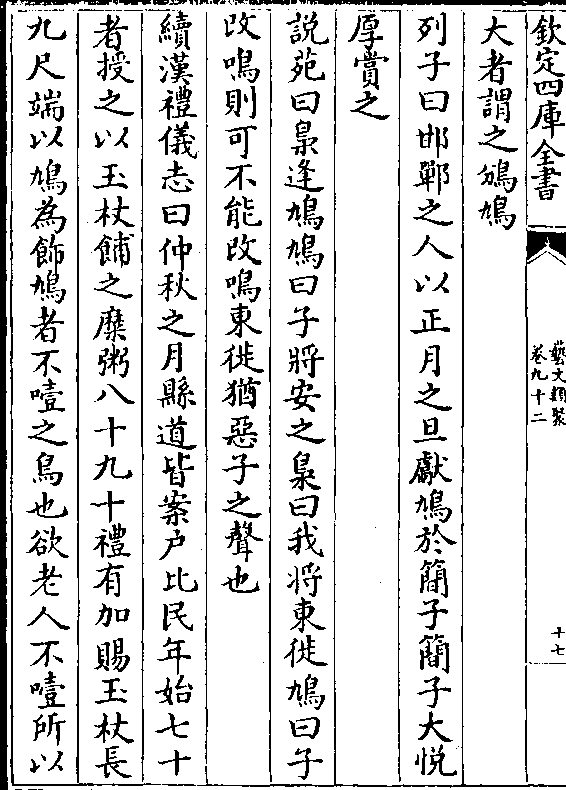 欽定四庫全書
藝文類聚
卷九十二
十七
大者謂之鳻鳩
列子曰邯鄲之人以正月之旦獻鳩於簡子簡子大悅
厚賞之
說苑曰梟逢鳩鳩曰子將安之梟曰我將東徙鳩曰子
改鳴則可不能改鳴東徙猶惡子之聲也
續漢禮儀志曰仲秋之月縣道皆案户比民年始七十
者授之以玉杖餔之糜粥八十九十禮有加賜玉杖長
九尺端以鳩為飾鳩者不噎之鳥也欲老人不噎所以